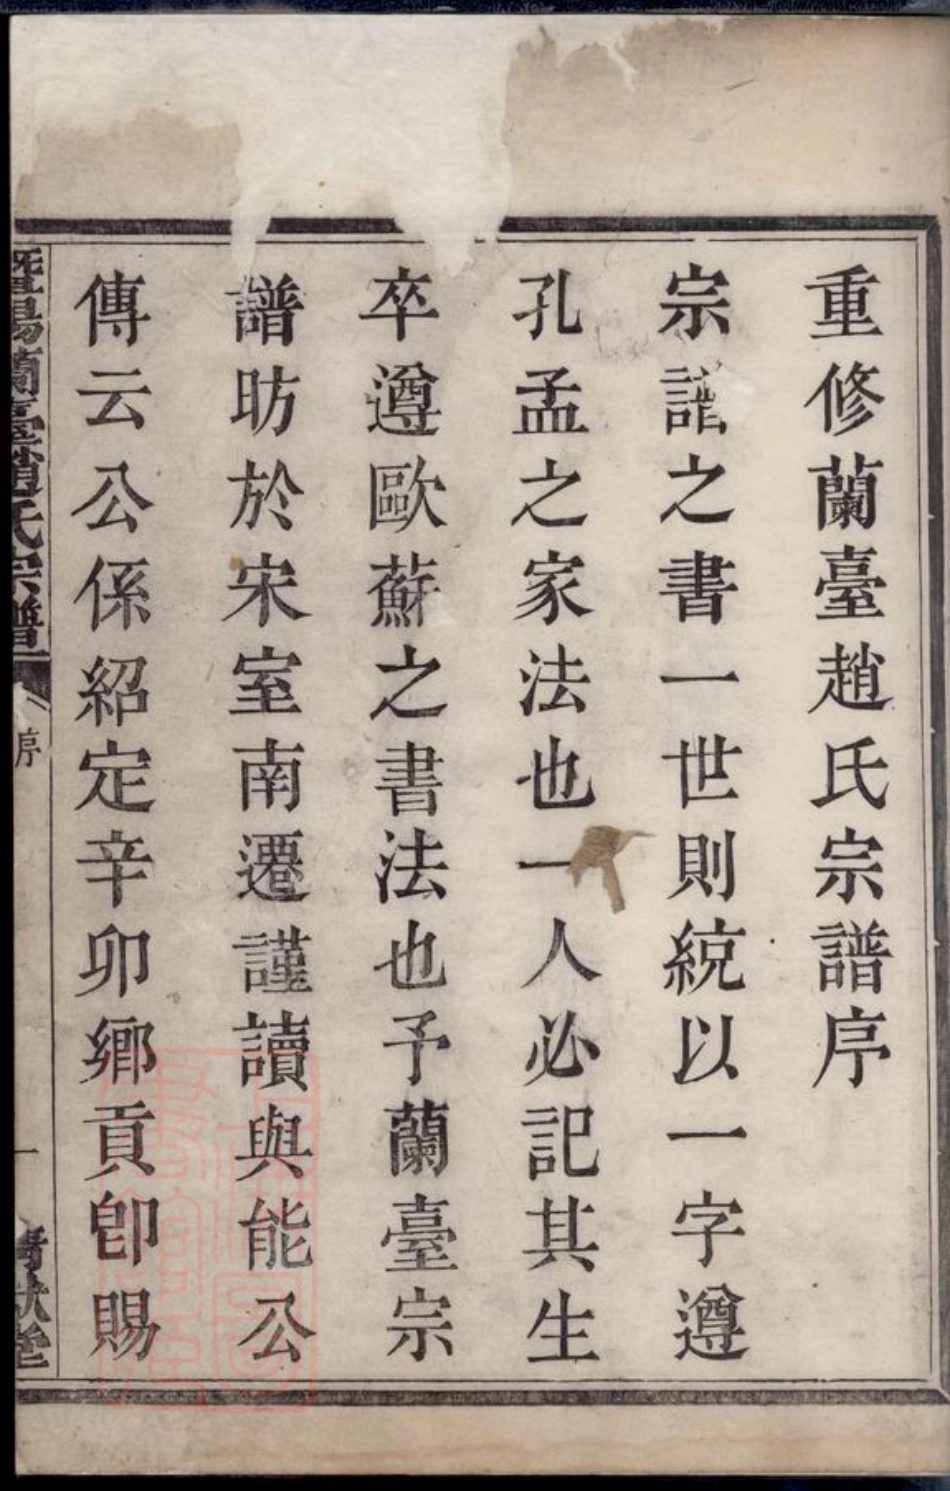 重修蘭臺趙氏宗譜序
宗譜之書一世則統以一字遵
孔孟之家法也一人必記其生
卒遵歐蘇之書法也予蘭臺宗
譜昉於宋室南遷謹讀與能公
傳云公係紹定辛卯鄉貢卽賜
暨陽蘭臺趙氏宗譜
序
一